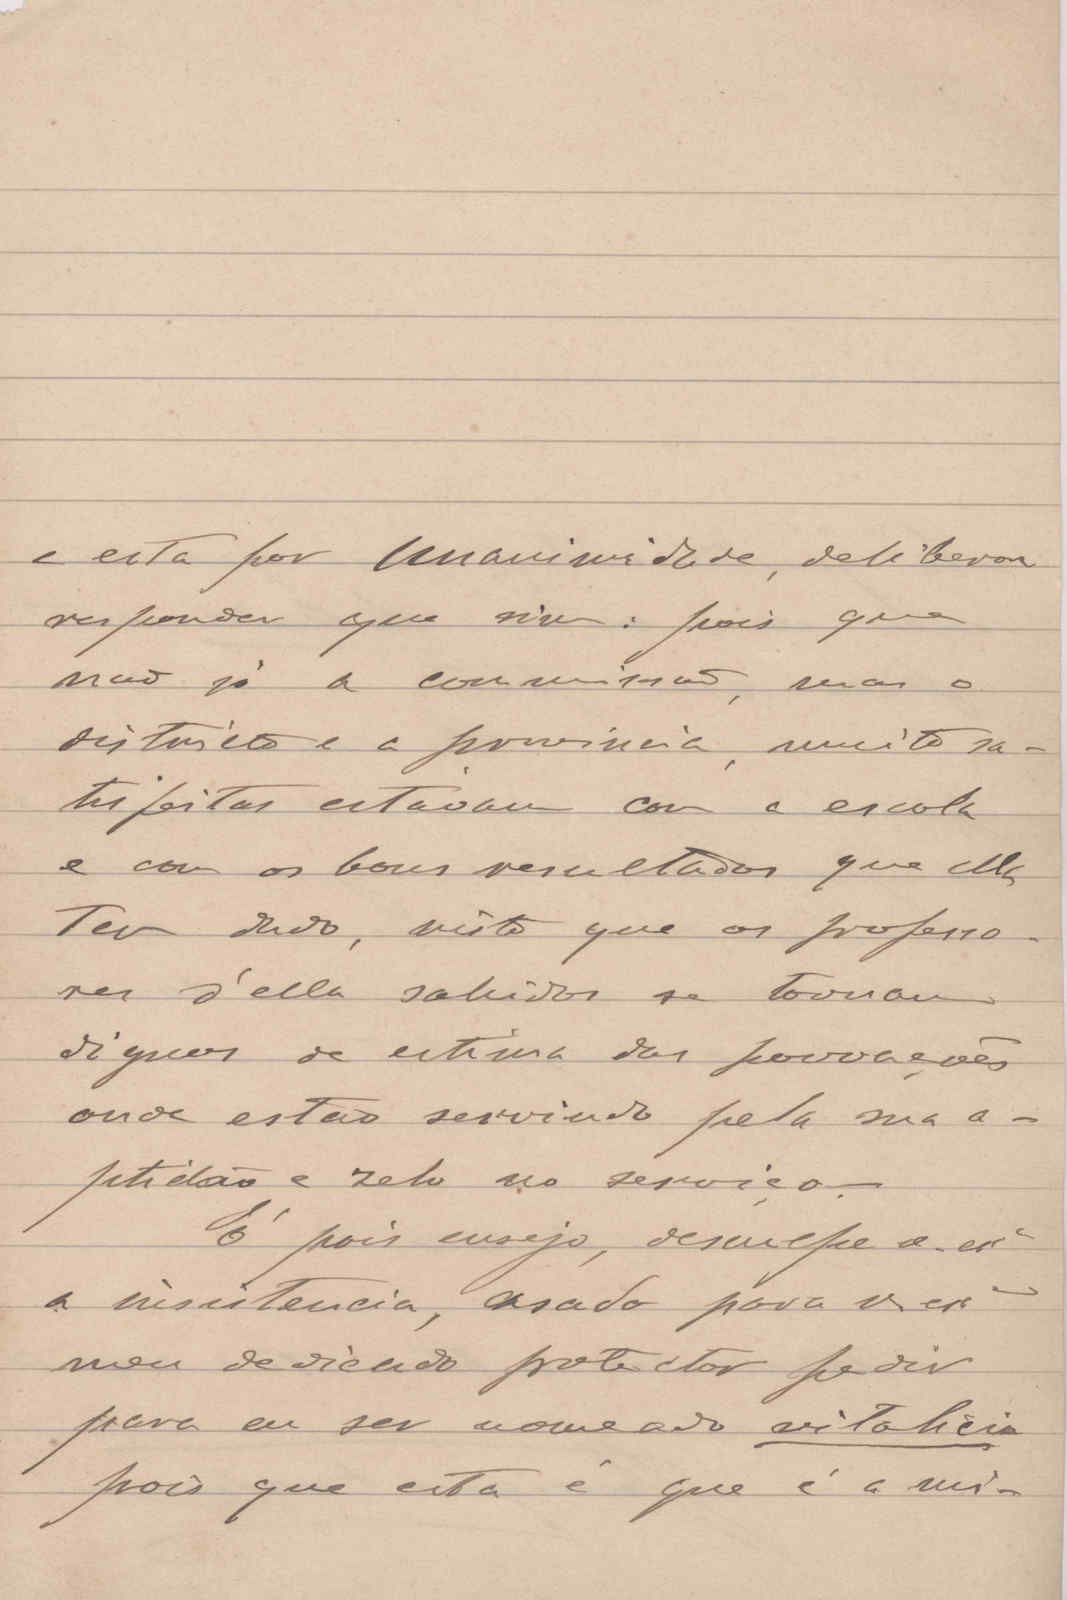 e esta por unanimidade, deliberou
responder que sim: pois que
naõ só a commissaõ, mas o
districto e a provincia, muito sa-
tisfeitas estávam com a escola
e com os bons resultados que ella
tem dado, visto que os professo-
res d'ella sahidos se tornam
dignos de estima das povoações
onde estão servindo pela sua a-
ptidão e zelo no serviço.
É pois ensejo, desculpe v. exª
a insistencia, asado para v. exª
meu dedicado protector pedir
para eu ser nomeado vitalicio
pois que esta é que é a mi-